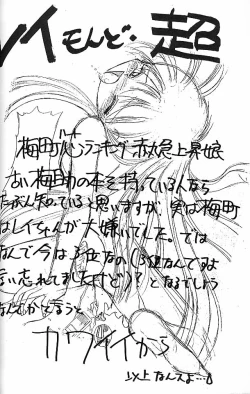 レイモンド・超
梅町バンランキング赤丸急上昇娘
古い梅町の本を持っている人なら
たぶん知っていると思いますが、実は梅町
はレイちゃんが大嫌いでした。では
なんで今は3位なの(3位なんですよ
言い忘れてましたけど)?となるでしょう
なんでかと言うと
カワイイから
以上なんスよ…